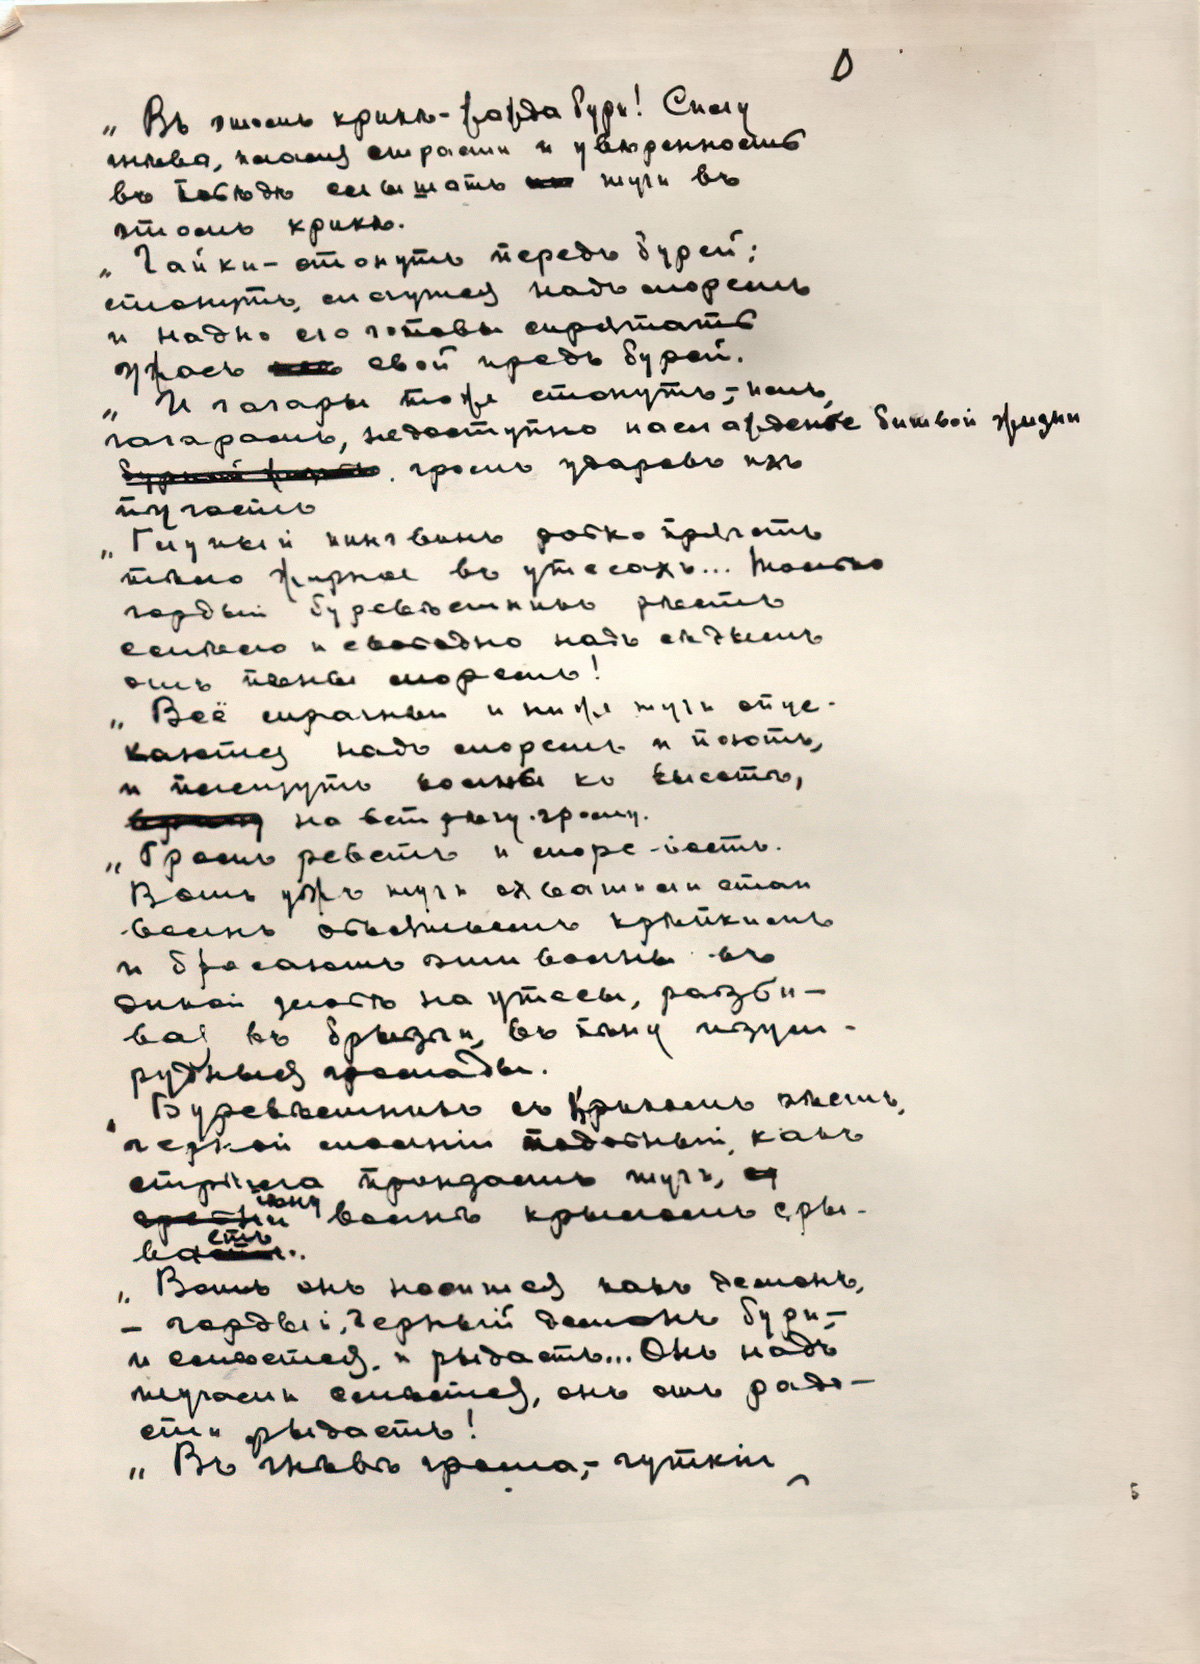 „ Въ этомъ крикѣ - жажда бури! Силу
гнѣва, пламя страсти и увѣренность
въ побѣдѣ слышатъ тучи въ
этомъ крикѣ.
„ Чайки - стонутъ передъ бурей;
стонутъ, мечутся надъ моремъ
и на дно его готовы спрятать
ужасъ свой предъ бурей.
„ И гагары тоже стонутъ, - имъ,
гагарамъ, недоступно наслажденье битвой жизни
громъ ударовъ ихъ
пугаетъ
„ Глупый пингвинъ робко прячетъ
тѣло жирное въ утесахъ... Только
гордый буревѣстникъ рѣетъ
смѣло и свободно надъ сѣдымъ
отъ пѣны моремъ!
„ Всё мрачнѣй и ниже тучи опус-
каются надъ моремъ и поютъ,
и рвутъ волны къ высотѣ,
на встрѣчу грому.
„ Громъ реветъ и море
Вотъ ужъ тучи охватили стаи
волнъ объятьемъ крѣпкимъ
и бросаютъ эти волны въ
дикой злобѣ на утесы, разби-
вая въ брызги, въ пыну изум-
рудныя громады.
„ Буревѣстникъ съ крикомъ рѣетъ,
черной молніи подобный, какъ
стрѣла пронзаетъ тучи,
пѣну волнъ крыломъ сры-
ваетъ.
„ Вотъ онъ носится какъ демонъ,
- гордый, черный демонъ бури, -
и смѣется, и рыдаетъ... Онъ надъ
тучами смѣется, онъ отъ радо-
сти рыдаетъ!
„ Въ гнѣвѣ грома, - чуткій
5